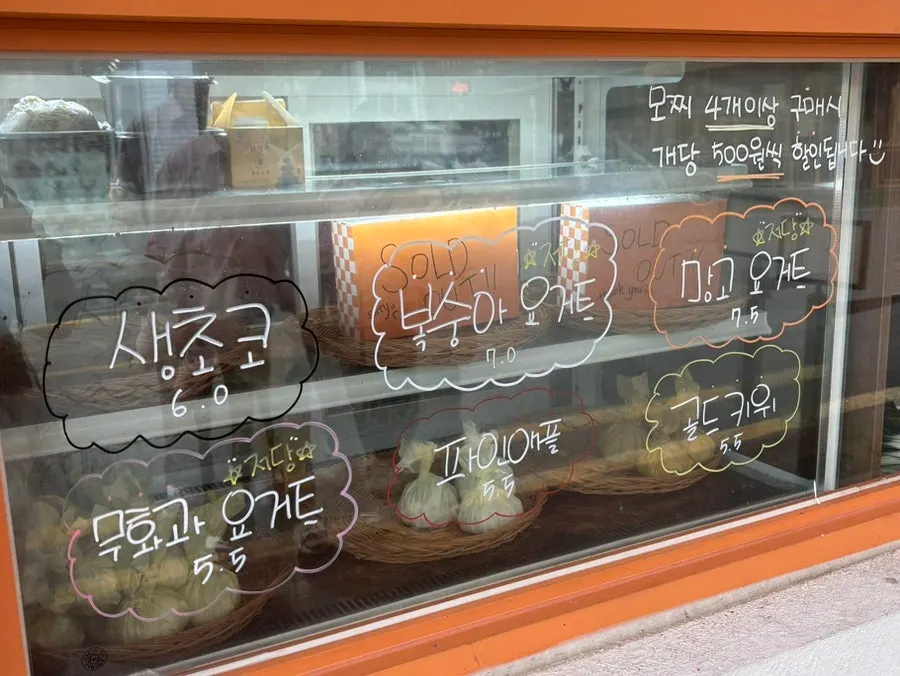 모찌 4개이상 구매시
개당 500원씩 할인됩니다
생초코
6.0
SOLD
OUT!!
복숭아 요거트
7.0
SOLD
OUT
thank you
저당
망고 요거트
7.5
저당
무화과 요거트
5.5
파인애플
5.5
골드키위
5.5